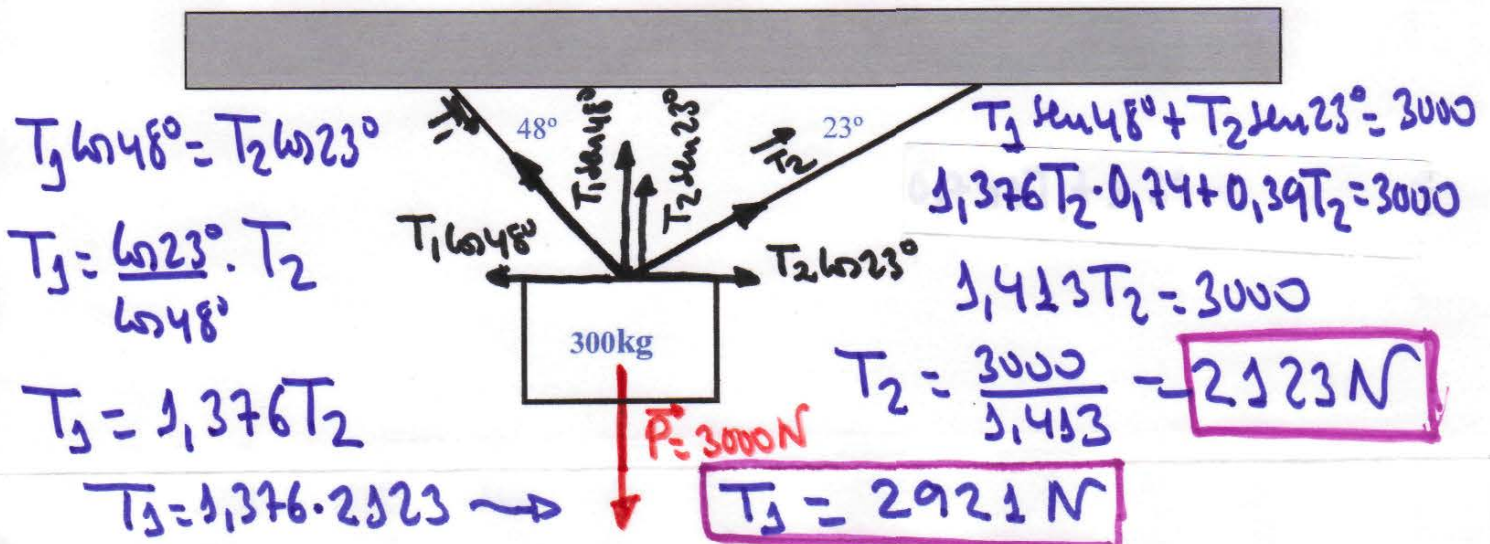 T₁ cos48° = T₂ cos23°
T₁ = cos23° / cos48° · T₂
T₁ = 1,376T₂
T₁ = 1,376·2123 → T₁ = 2921 N
T₁
48°
T₁ sen48°
T₂ sen23°
T₂
23°
T₁ cos48°
T₂ cos23°
300kg
P = 3000N
T₁ sen48° + T₂ sen23° = 3000
1,376T₂·0,74 + 0,39T₂ = 3000
1,413T₂ = 3000
T₂ = 3000 / 1,413 = 2123 N